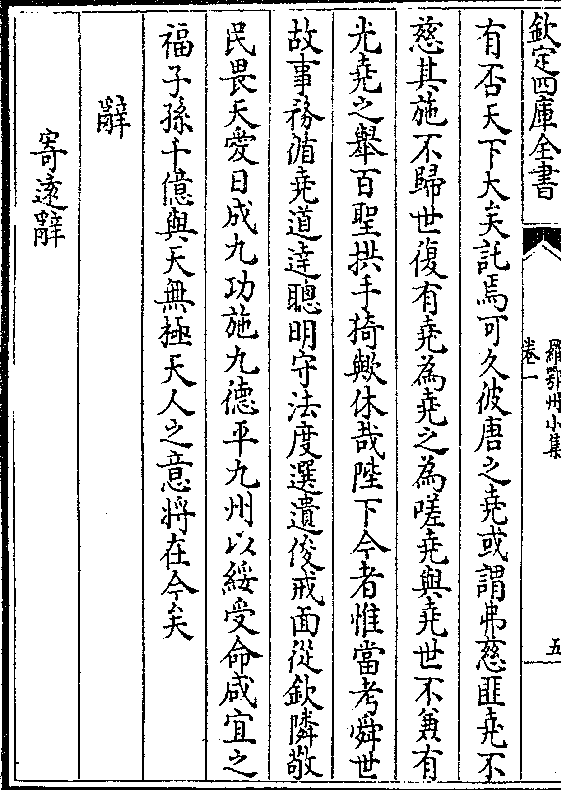 欽定四庫全書
羅鄂州小集
卷一
五
有否天下大矣託焉可久彼唐之堯或謂弗慈匪堯不
慈其施不歸世復有堯為堯之為嗟堯與堯世不兼有
光堯之舉百聖拱手猗歟休哉陛下今者惟當考舜世
故事務循堯道達聰明守法度選遺俊戒面從欽隣敬
民畏天愛日成九功施九德平九州以綏受命咸宜之
福子孫千億與天無極天人之意將在今矣
辭
寄遠辭